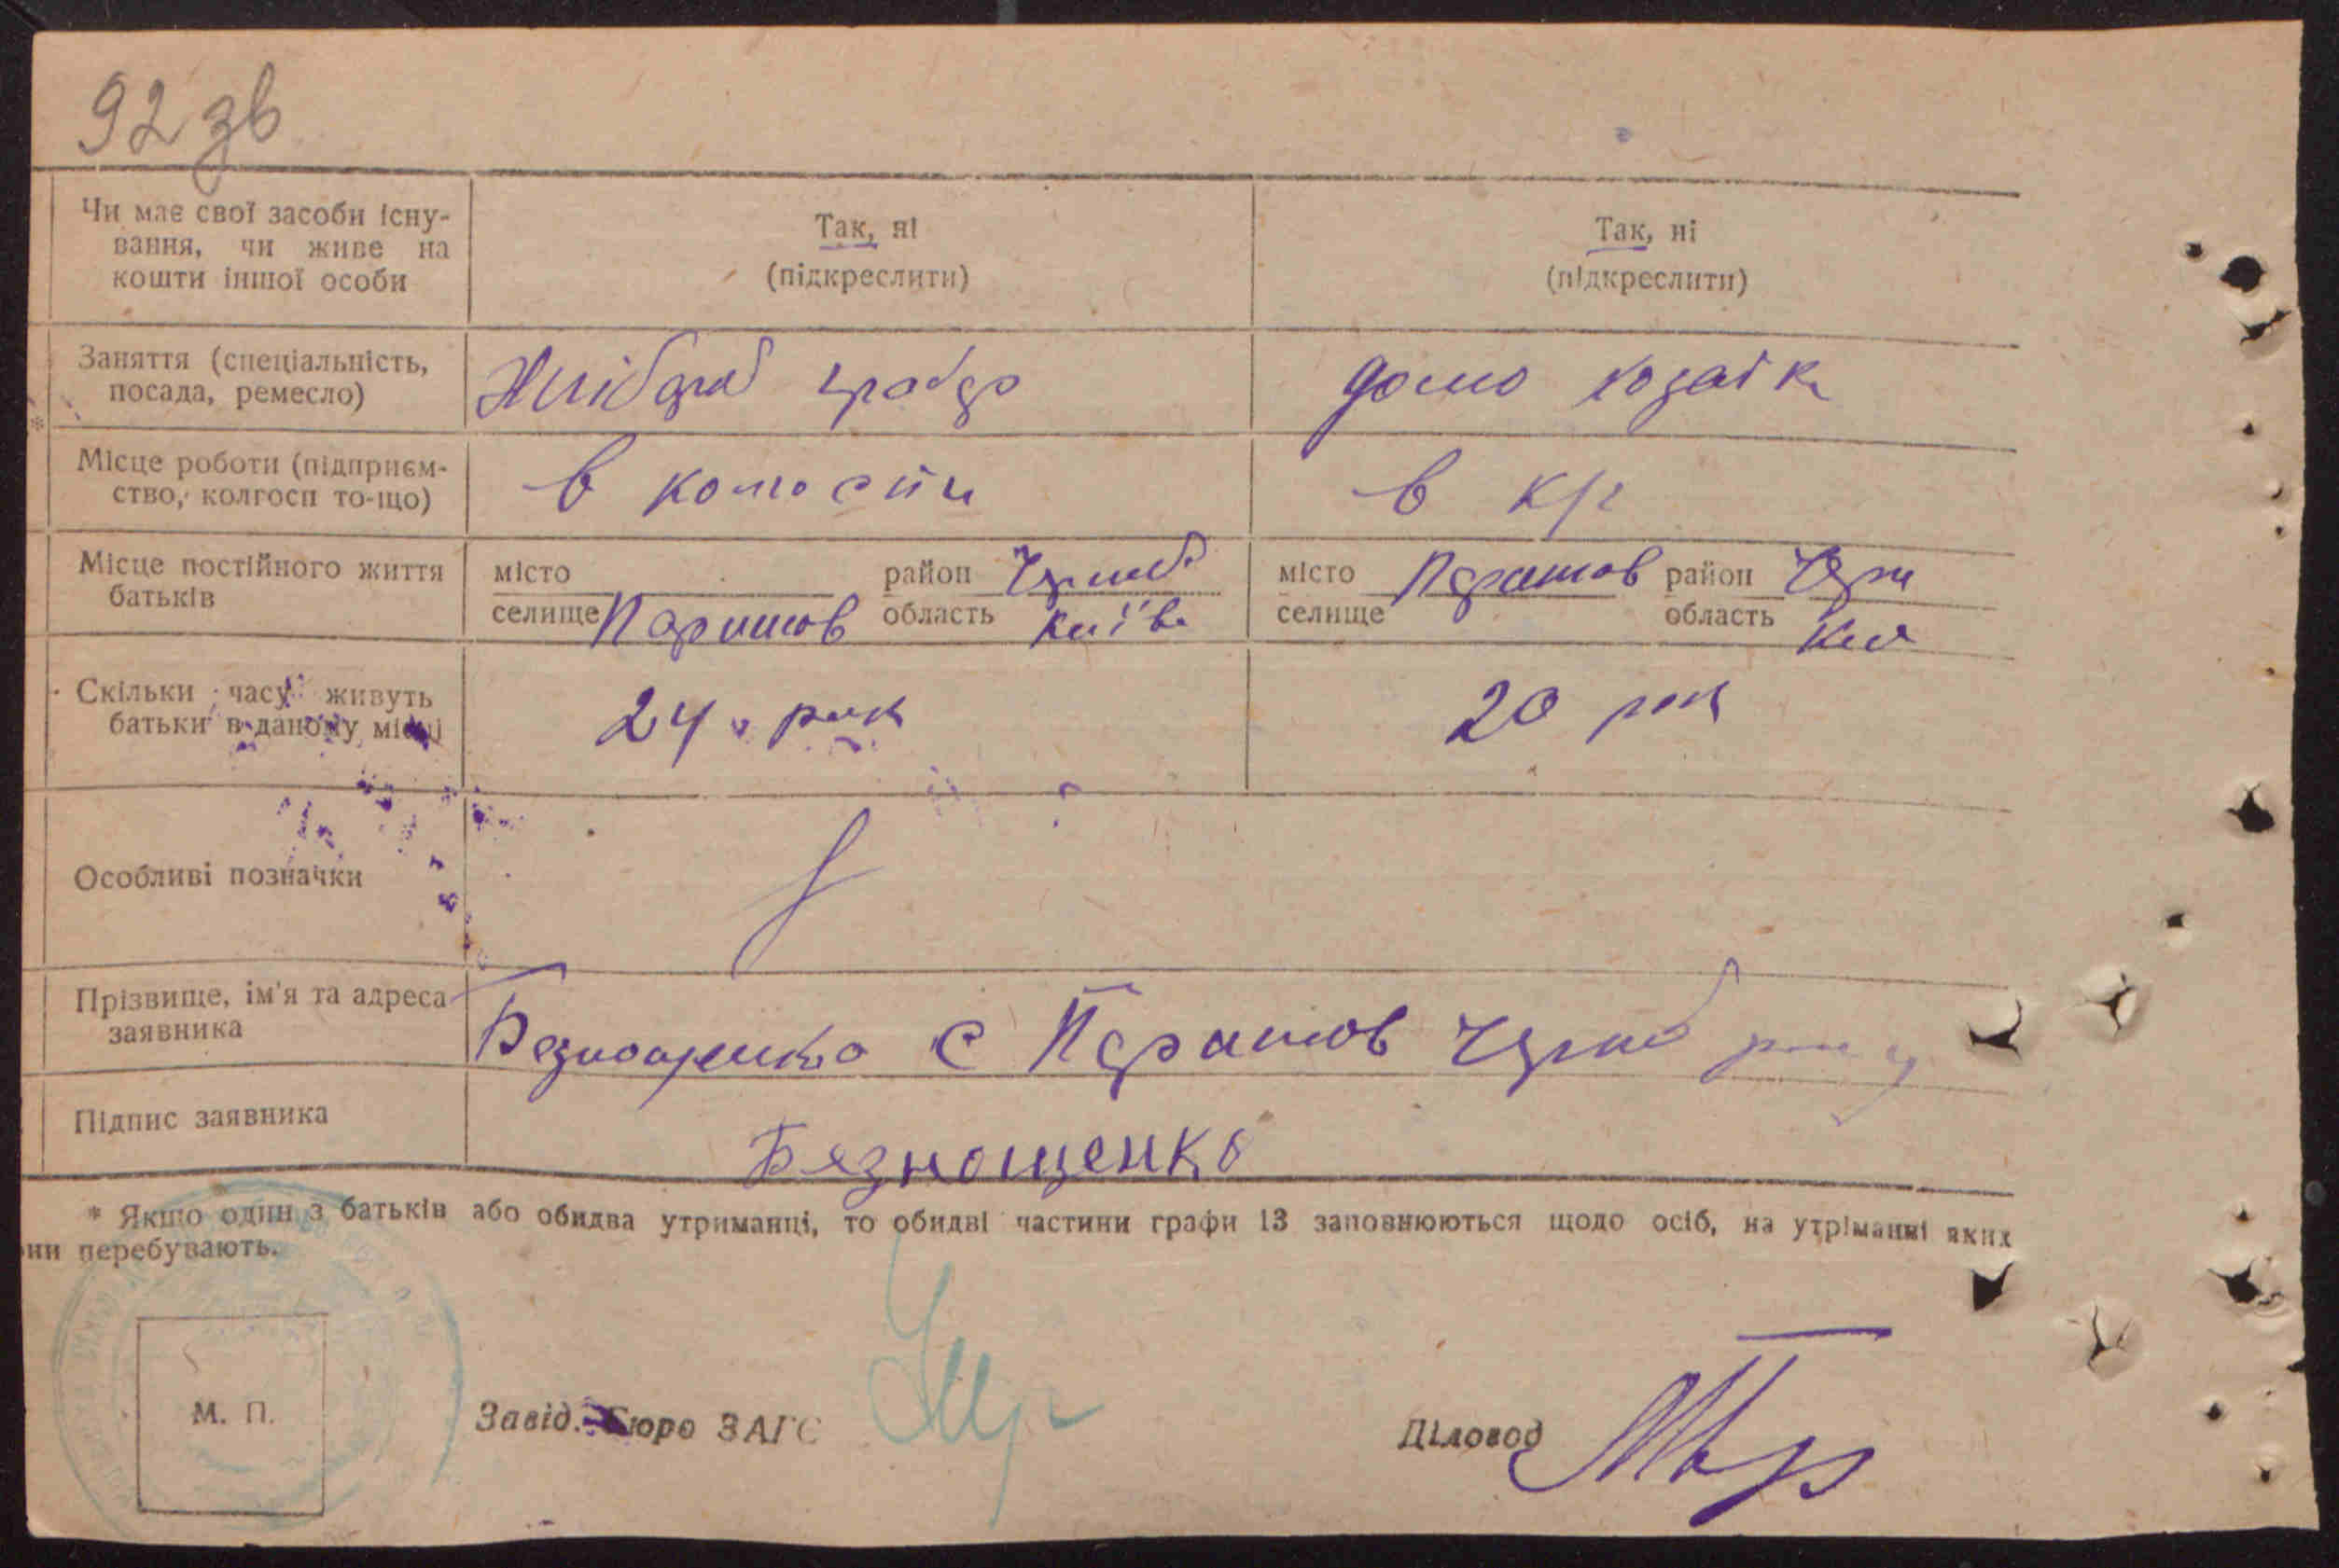 92 зв
Чи має свої засоби існу-
вання, чи живе на
кошти іншої особи
Так, ні
(підкреслити)
Так, ні
(підкреслити)
Заняття (спеціальність,
посада, ремесло)
домо хозаік
*
Місце роботи (підприєм-
ство, колгосп то-що)
в
в к/г
Місце постійного життя
батьків
місто
район
селище Паришов
область Київ
місто Паришов
район Чорн
селище
область
Скільки часу живуть
батьки в даному місці
24 рок
20 рок
Особливі позначки
Прізвище, ім'я та адреса
заявника
Безнощенко с Паришов Чорноб
Підпис заявника
Безнощенко
* Якщо один з батьків або обидва утриманці, то обидві частини графи 13 заповнюються щодо осіб, на утріманні яких
ни перебувають.
М. П.
Завід. Бюро ЗАГС
Діловод